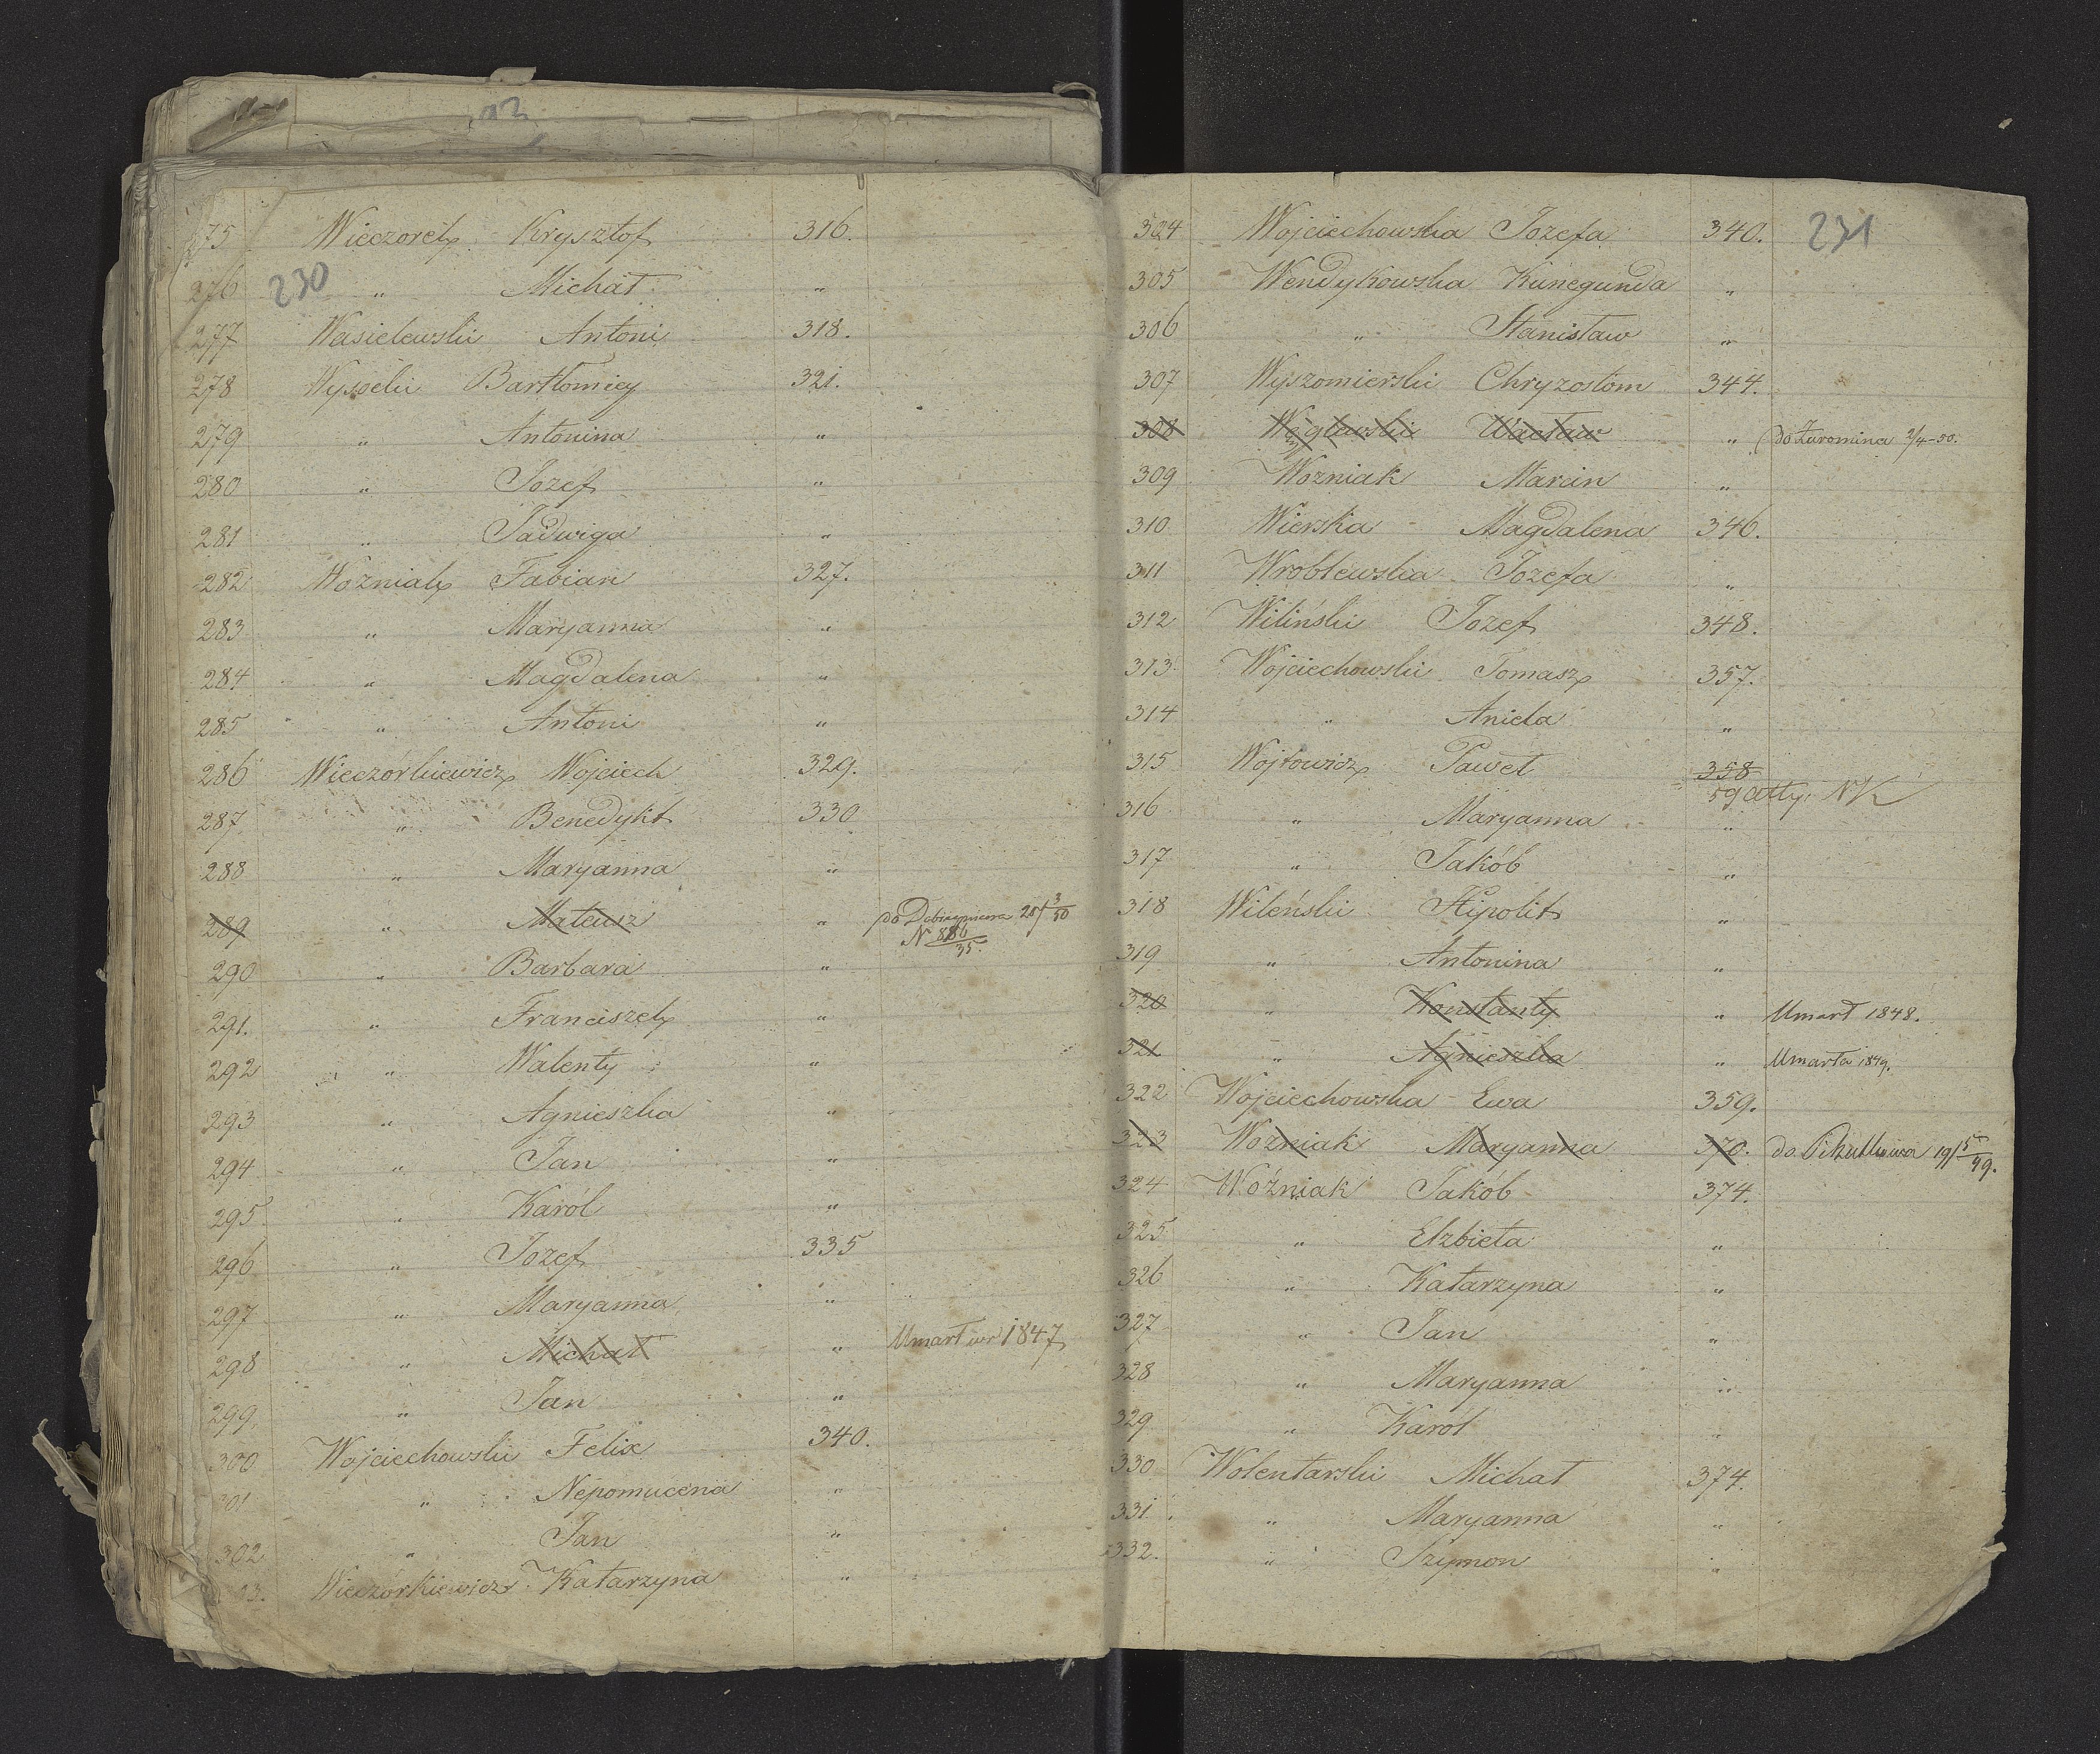 93
75 Wieczorek Krysztof 316.
230
276 " Michał "
277 Wasielewski Antoni 318.
278 Wysocki Bartłomiey 321.
279 " Antonina "
280 " Jozef "
281 " Jadwiga "
282 Wozniak Fabian 327.
283 " Maryanna "
284 " Magdalena "
285 " Antoni "
286 Wieczórkiewicz Wojciech 329.
287 " Benedykt 330
288 " Maryanna "
289 " Mateusz " do 28/3/50
N 886/35.
290 " Barbara "
291. " Franciszek "
292 " Walenty "
293 " Agnieszka "
294 " Jan "
295 " Karól "
296 " Jozef 335
297 " Maryanna "
298 " Michał " Umarł w r 1847
299. " Jan "
300 Wojciechowski Felix 340.
301 " Nepomucena "
302 " Jan "
03. Wieczórkiewicz Katarzyna "
304 Wojciechowska Jozefa 340.
231
305 Wendykowska Kunegunda "
306 " Stanisław "
307 Wyszomierski Chryzostom 344.
308 Wacław " do Żuromina 2/4-50.
309 Wozniak Marcin "
310 Wierska Magdalena 346.
311 Wroblewska Jozefa "
312 Wiliński Jozef 348.
313 Wojciechowski Tomasz 357.
314 " Aniela "
315 Wojtowicz Paweł 358
59 NK
316 " Maryanna "
317 " Jakób "
318 Wileński Hipolit "
319 " Antonina "
320 " Konstanty " Umarł 1848.
321 " Agnieszka " Umarła 1849.
322 Wojciechowska Ewa 359.
323 Wozniak Maryanna 370. do 19/5/49.
324 Woźniak Jakób 374.
325 " Elzbieta "
326 " Katarzyna "
327 " Jan "
328 " Maryanna "
329 " Karól "
330 Wolentarski Michał 374.
331. " Maryanna "
332. " Szymon "